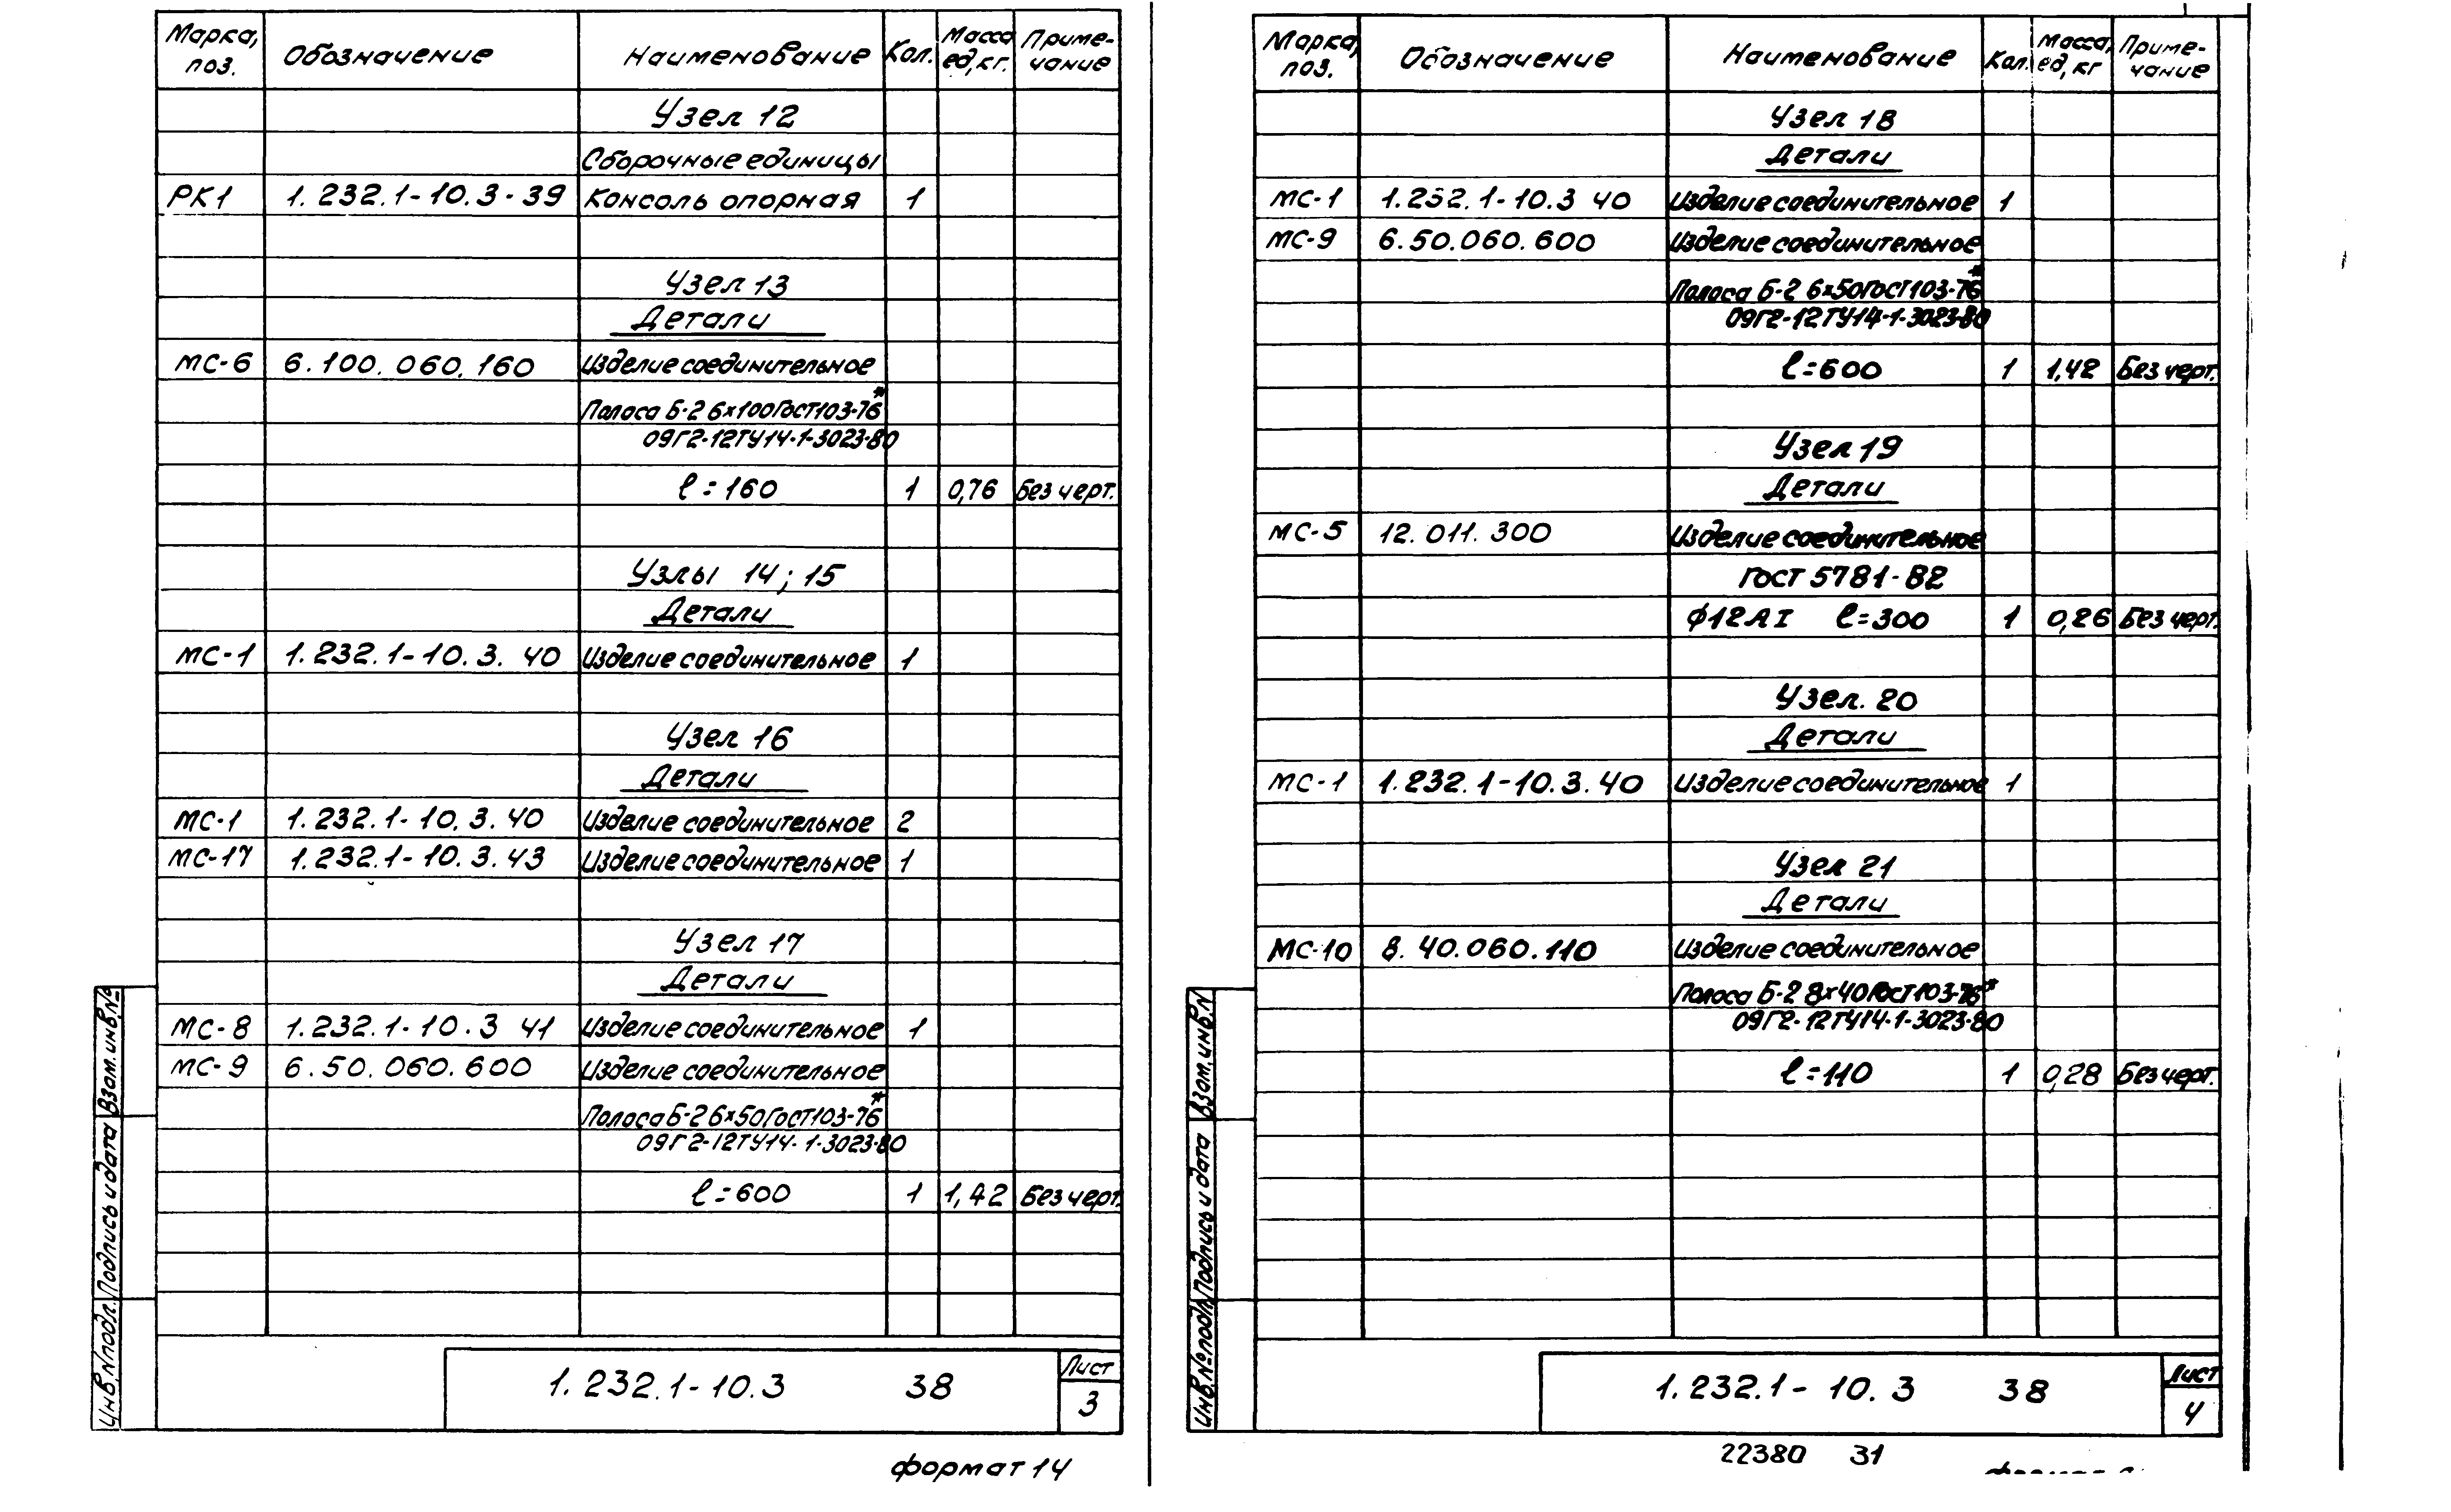 Марка, поз. Обозначение Наименование Кол. Масса ед, кг. Приме-чание
Узел 12
Сборочные единицы
РК1 1.232.1-10.3-39 Консоль опорная 1
Узел 13
Детали
МС-6 6.100.060.160 Изделие соединительное
Полоса Б-2 6х100 ГОСТ 103-76*
09Г2-12ТУ14-1-3023-80
ℓ=160 1 0,76 Без черт.
Узлы 14; 15
Детали
МС-1 1.232.1-10.3. 40 Изделие соединительное 1
Узел 16
Детали
МС-1 1.232.1-10.3.40 Изделие соединительное 2
МС-17 1.232.1-10.3.43 Изделие соединительное 1
Узел 17
Детали
МС-8 1.232.1-10.3 41 Изделие соединительное 1
МС-9 6.50.060.600 Изделие соединительное
Полоса Б-2 6х50 ГОСТ 103-76*
09Г2-12ТУ14-1-3023-80
ℓ=600 1 1,42 Без черт.
Инв.№подл. Подпись и дата Взам.инв.№
1.232.1-10.3 38
Лист
3
формат 14
Марка, поз. Обозначение Наименование Кол. Масса, ед, кг Приме-чание
Узел 18
Детали
МС-1 1.232.1-10.3 40 Изделие соединительное 1
МС-9 6.50.060.600 Изделие соединительное
Полоса Б-2 6х50 ГОСТ 103-76*
09Г2-12ТУ14-1-3023-80
ℓ=600 1 1,42 Без черт.
Узел 19
Детали
МС-5 12.011.300 Изделие соединительное
ГОСТ 5781-82
ф12АI ℓ=300 1 0,26 Без черт.
Узел. 20
Детали
МС-1 1.232.1-10.3.40 Изделие соединительное 1
Узел 21
Детали
МС-10 8.40.060.110 Изделие соединительное
Полоса Б-2 8х40 ГОСТ 103-76*
09Г2-12ТУ14-1-3023-80
ℓ=110 1 0,28 Без черт.
Инв.№подл. Подпись и дата Взам.инв.N
1.232.1-10.3 38
Лист
4
22380 31